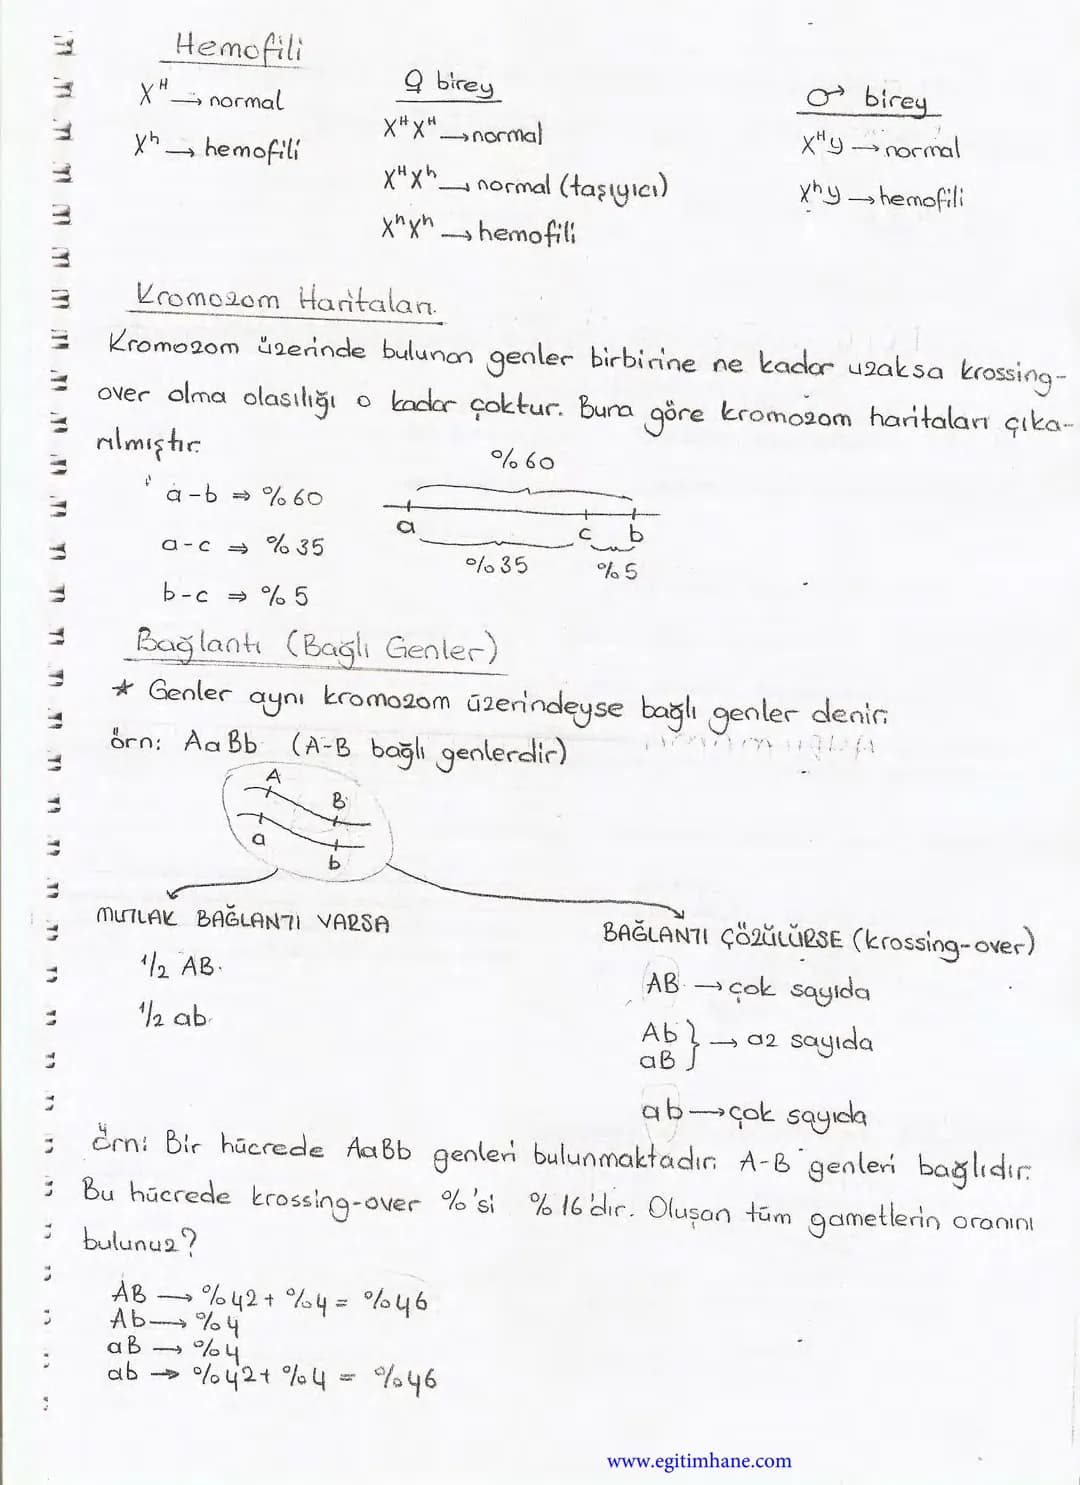 Hemofili
X^H → normal
X^h → hemofili
♀ birey
X^H X^H → normal
X^H X^h → normal (taşıyıcı)
X^h X^h → hemofili
♂ birey
X^H y → normal
X^h y → hemofili
Kromozom Haritaları
Kromozom üzerinde bulunan genler birbirine ne kadar uzaksa krossing-
over olma olasılığı o kadar çoktur. Buna göre kromozom haritaları çıka-
rılmıştır.
a-b ⇒ %60
a-c ⇒ %35
b-c ⇒ %5
%60
a c b
%35 %5
Bağlantı (Bağlı Genler)
* Genler aynı kromozom üzerindeyse bağlı genler denir.
örn: AaBb (A-B bağlı genlerdir)
A
B
a
b
MUTLAK BAĞLANTI VARSA
1/2 AB
1/2 ab
BAĞLANTI ÇÖZÜLÜRSE (krossing-over)
AB → çok sayıda
Ab } → az sayıda
aB
ab → çok sayıda
Örn: Bir hücrede AaBb genleri bulunmaktadır. A-B genleri bağlıdır.
Bu hücrede krossing-over %'si %16'dır. Oluşan tüm gametlerin oranını
bulunuz?
AB → %42 + %4 = %46
Ab → %4
aB → %4
ab → %42 + %4 = %46
www.egitimhane.com